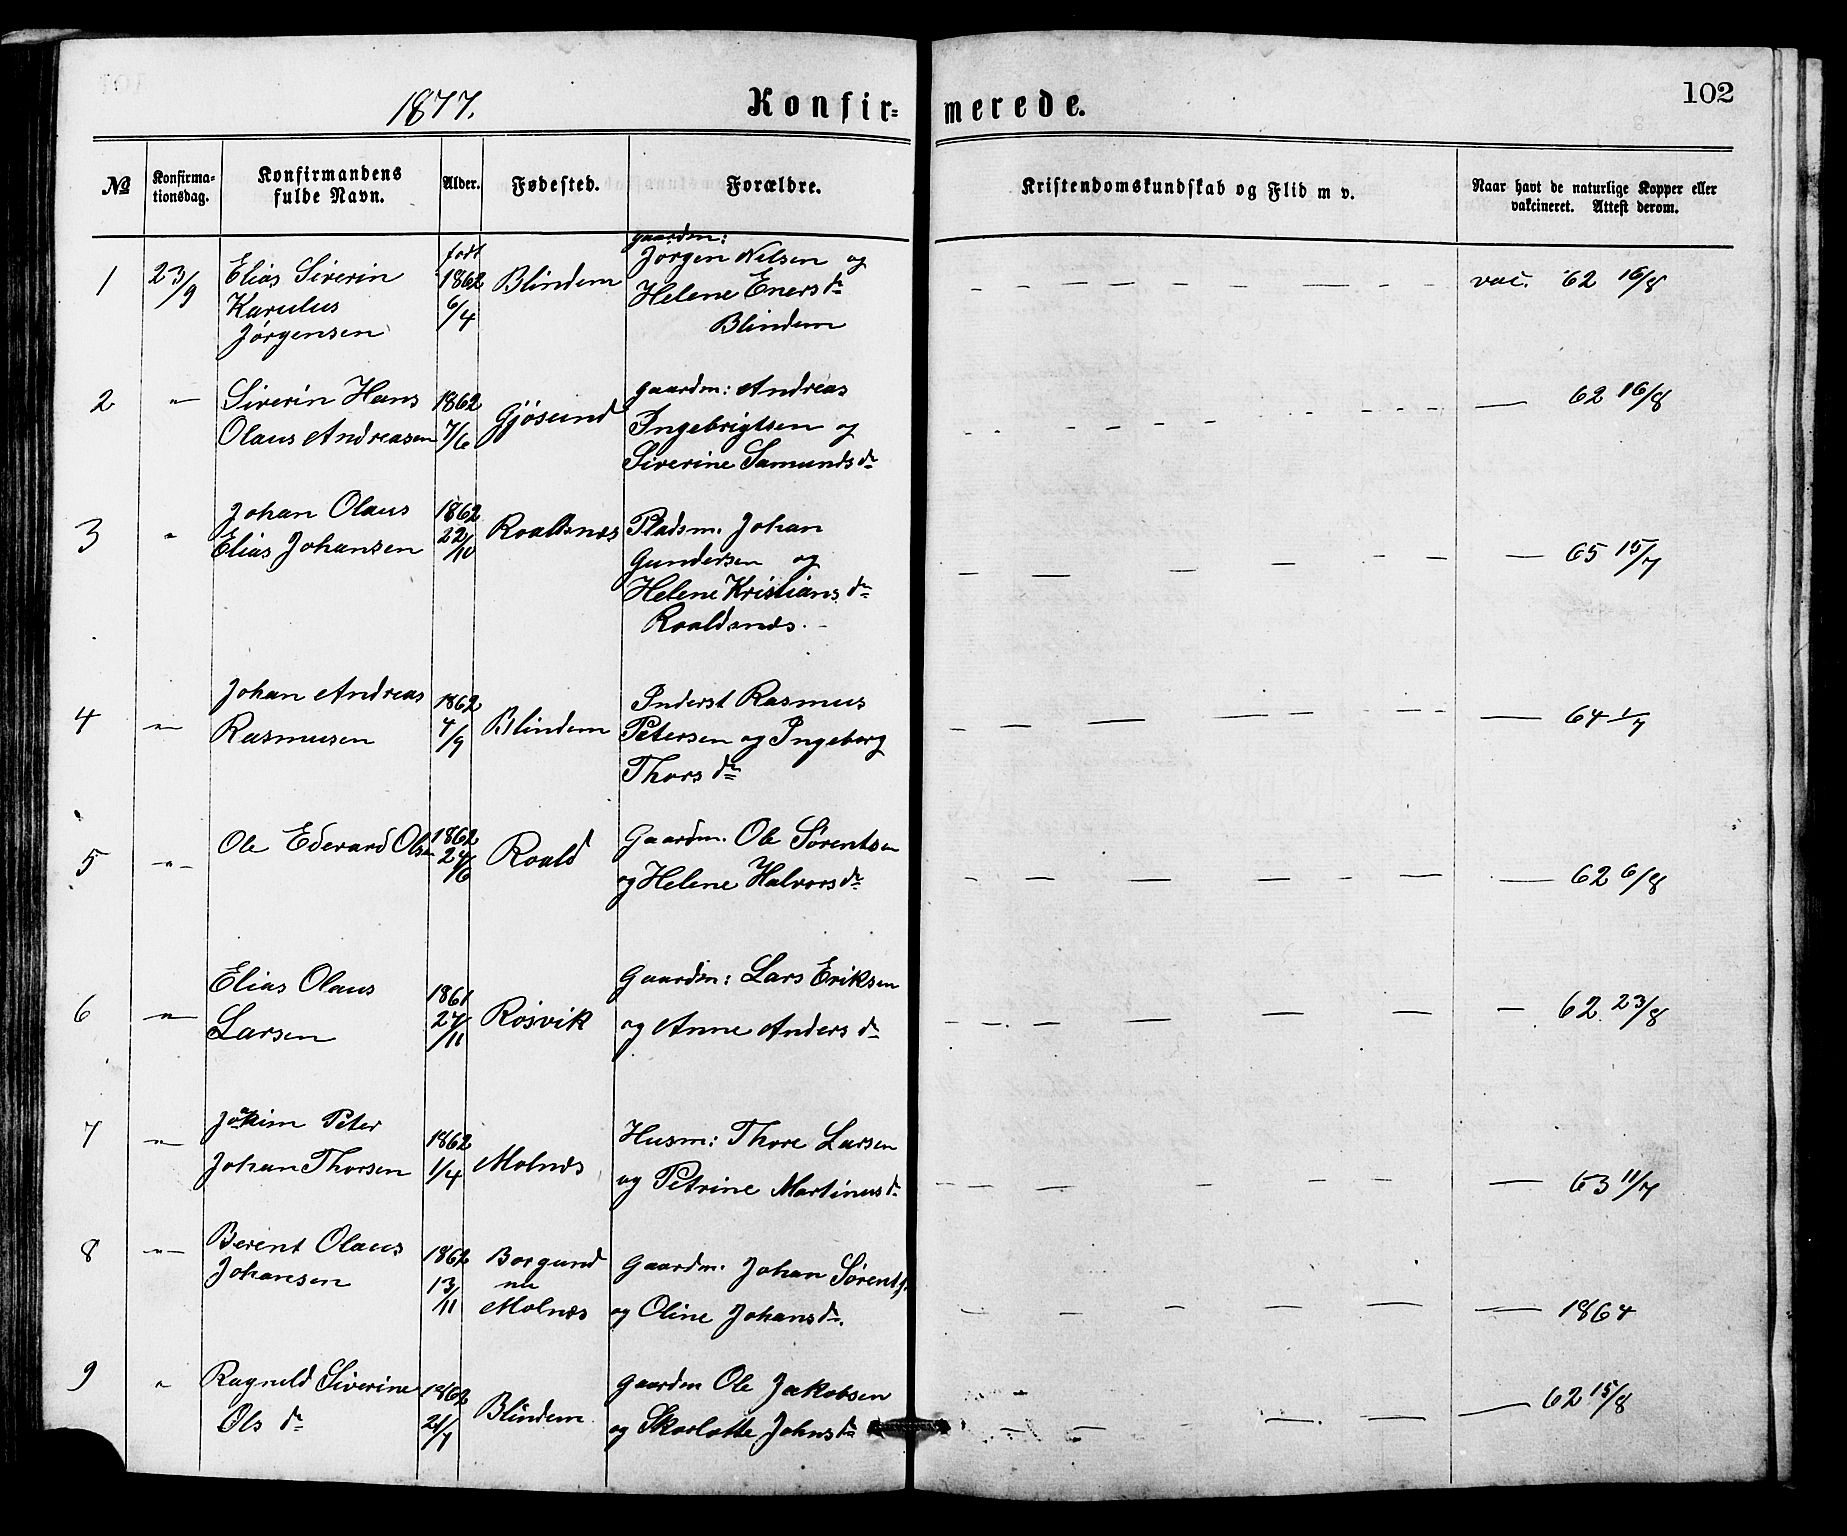 1877. Konfir- merede. 102
№ Konfirmationsdag. Konfirmandens fulde Navn. Alder. Fødested. Forældre. Kristendomskundskab og Flid m v. Naar havt de naturlige Kopper eller vakcineret. Attest derom.
født gaardm:
1 23/9 Elias Siverin 1862 Blindem Jørgen Nelsen og — vac. 62 16/8
Karulus 6/4 Helene Eners dr
Jørgensen Blindem
2 " Siverin Hans 1862 Gjøsund gaardm: Andreas — 62 16/8
Olaus Andreasen 7/6 Ingebrigtsen og
Siverine Samunds dr
3 " Johan Olaus 1862 Roaldsnæs Pladsm. Johan — 65 15/7
Elias Johansen 22/10 Gundersen og
Helene Kristians dr
Roaldsnæs.
4 " Johan Andreas 1862 Blindem Inderst Rasmus — 64 1/7
Rasmusen 4/9 Petersen og Ingeborg
Thors dr
5 " Ole Edevard Olsen 1862 24/6 Roald Gaardm. Ole Sørentsen — 62 6/8
og Helene Halvors dr
6 " Elias Olaus 1861 Røsvik Gaardm: Lars Eriksen — 62 23/8
Larsen 27/11 og Anne Anders dr
7 " Joakim Peter 1862 Molnæs Husm: Thore Larsen 63 11/7
Johan Thorsen 1/4 og Petrine Martinus dr
8 " Berent Olaus 1862 Borgund Gaardm. Johan Sørents. — 1864
Johansen 13/11 nu
Molnæs og Oline Johans dr.
9 " Ragneld Siverine 1862 Blindem. Gaardm Ole Jakobsen — 62 15/8
Ols dr 21/7 og Skarlotte Johns dr